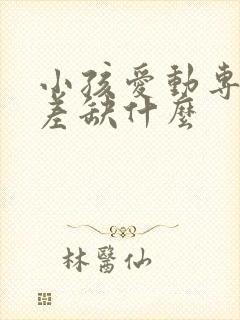 小孩愛動專
差缺什麼
林醫仙